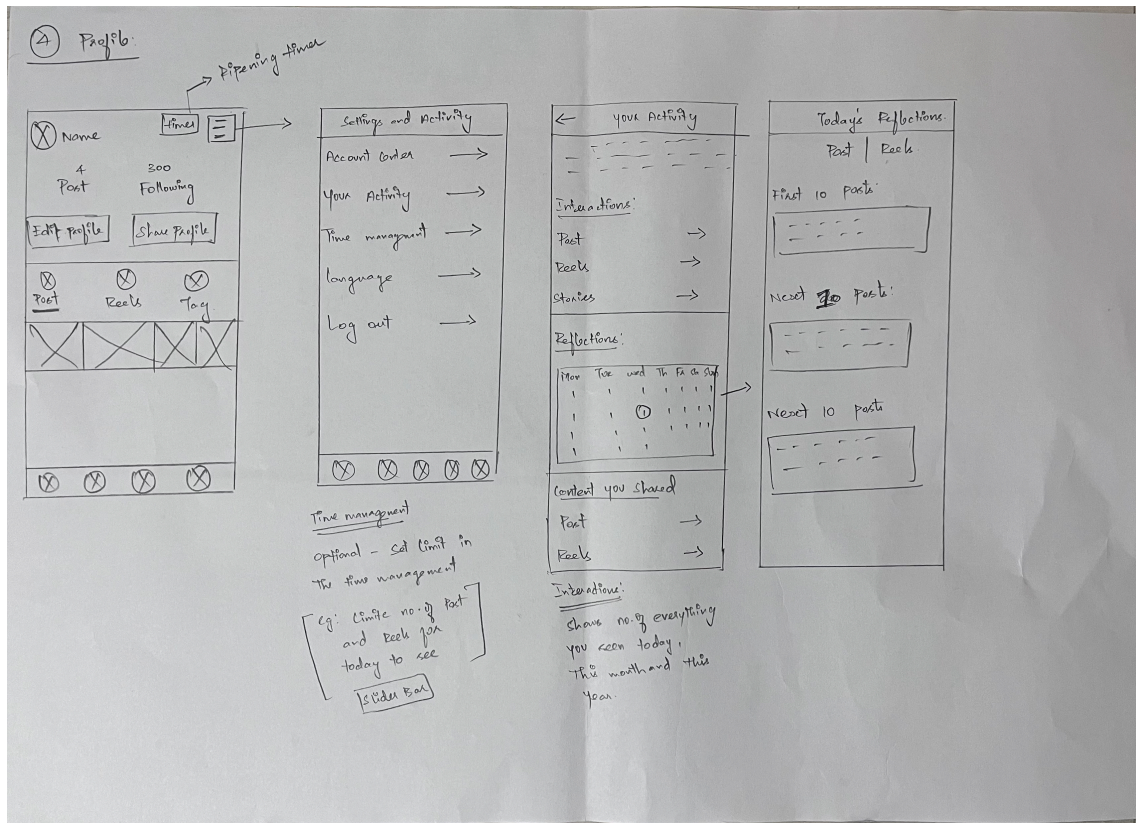 4 Profile:
Ripening timer
Name
timer
4
Post
300
Following
Edit profile
Share Profile
Post
Reels
Tag
Settings and Activity
Account
Your Activity
Time managment
language
Log out
Time managment
optional - set limit in
The time management
eg: limite no. of Post
and Reels for
today to see
Slider Bar
← Your Activity
Interactions:
Post
Reels
Stories
Reflections:
Mon Tue wed Th Fri Sun
Content you shared
Post
Reels
Interactions:
Shows no. of everything
you seen today,
This month and this
year.
Today's Reflections.
Post | Reels
First 10 posts:
Next 10 posts:
Next 10 posts